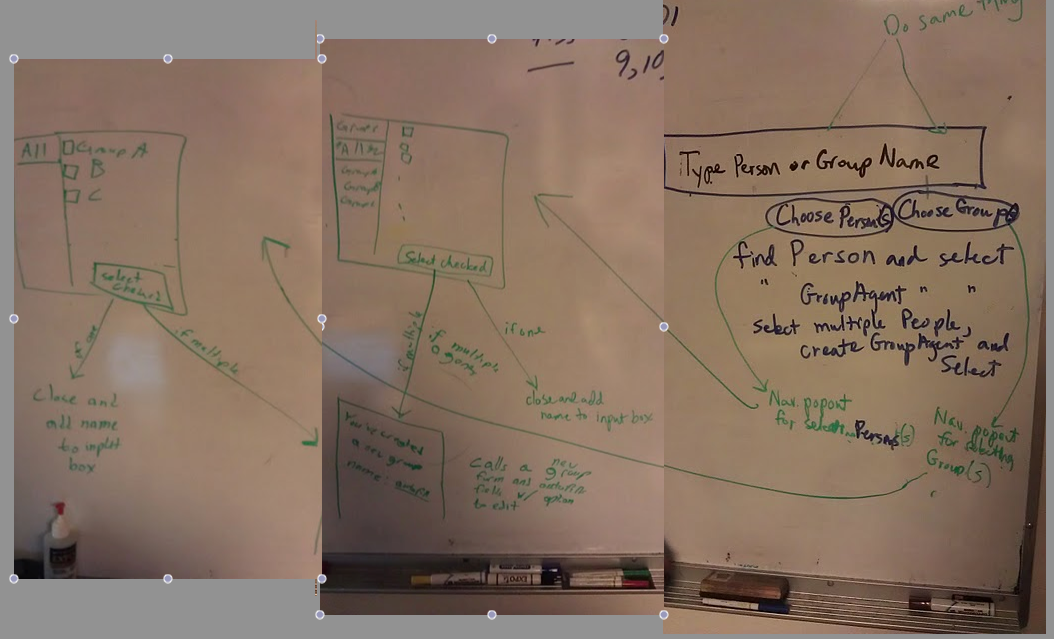 All
Group A
B
C
select
checked
if one
if multiple
Close and
add name
to input
box
9,10
All
Group
Group
Select checked
if multiple
if multiple
agents
if one
close and add
name to input box
You've created
a new group
name:
Calls a new group
form and
fields option
to edit
Do same thing
Type Person or Group Name
Choose Person(s)
Choose Group(s)
find Person and select
" GroupAgent " "
select multiple People,
create GroupAgent and
Select
Nav. popout
for selecting Person(s)
Nav. popout
for selecting
Group(s)
EXPO